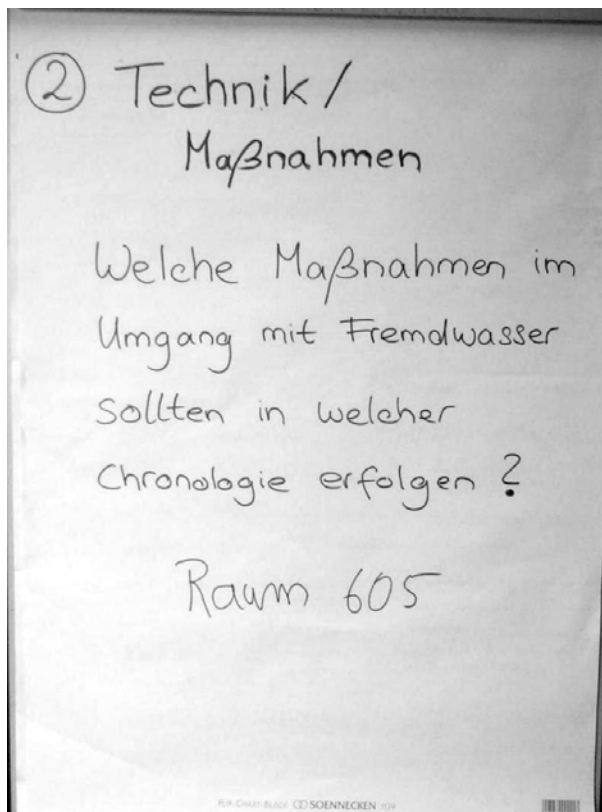 ② Technik/
Maßnahmen
Welche Maßnahmen im
Umgang mit Fremdwasser
sollten in welcher
Chronologie erfolgen?
Raum 605
SOENNECKEN